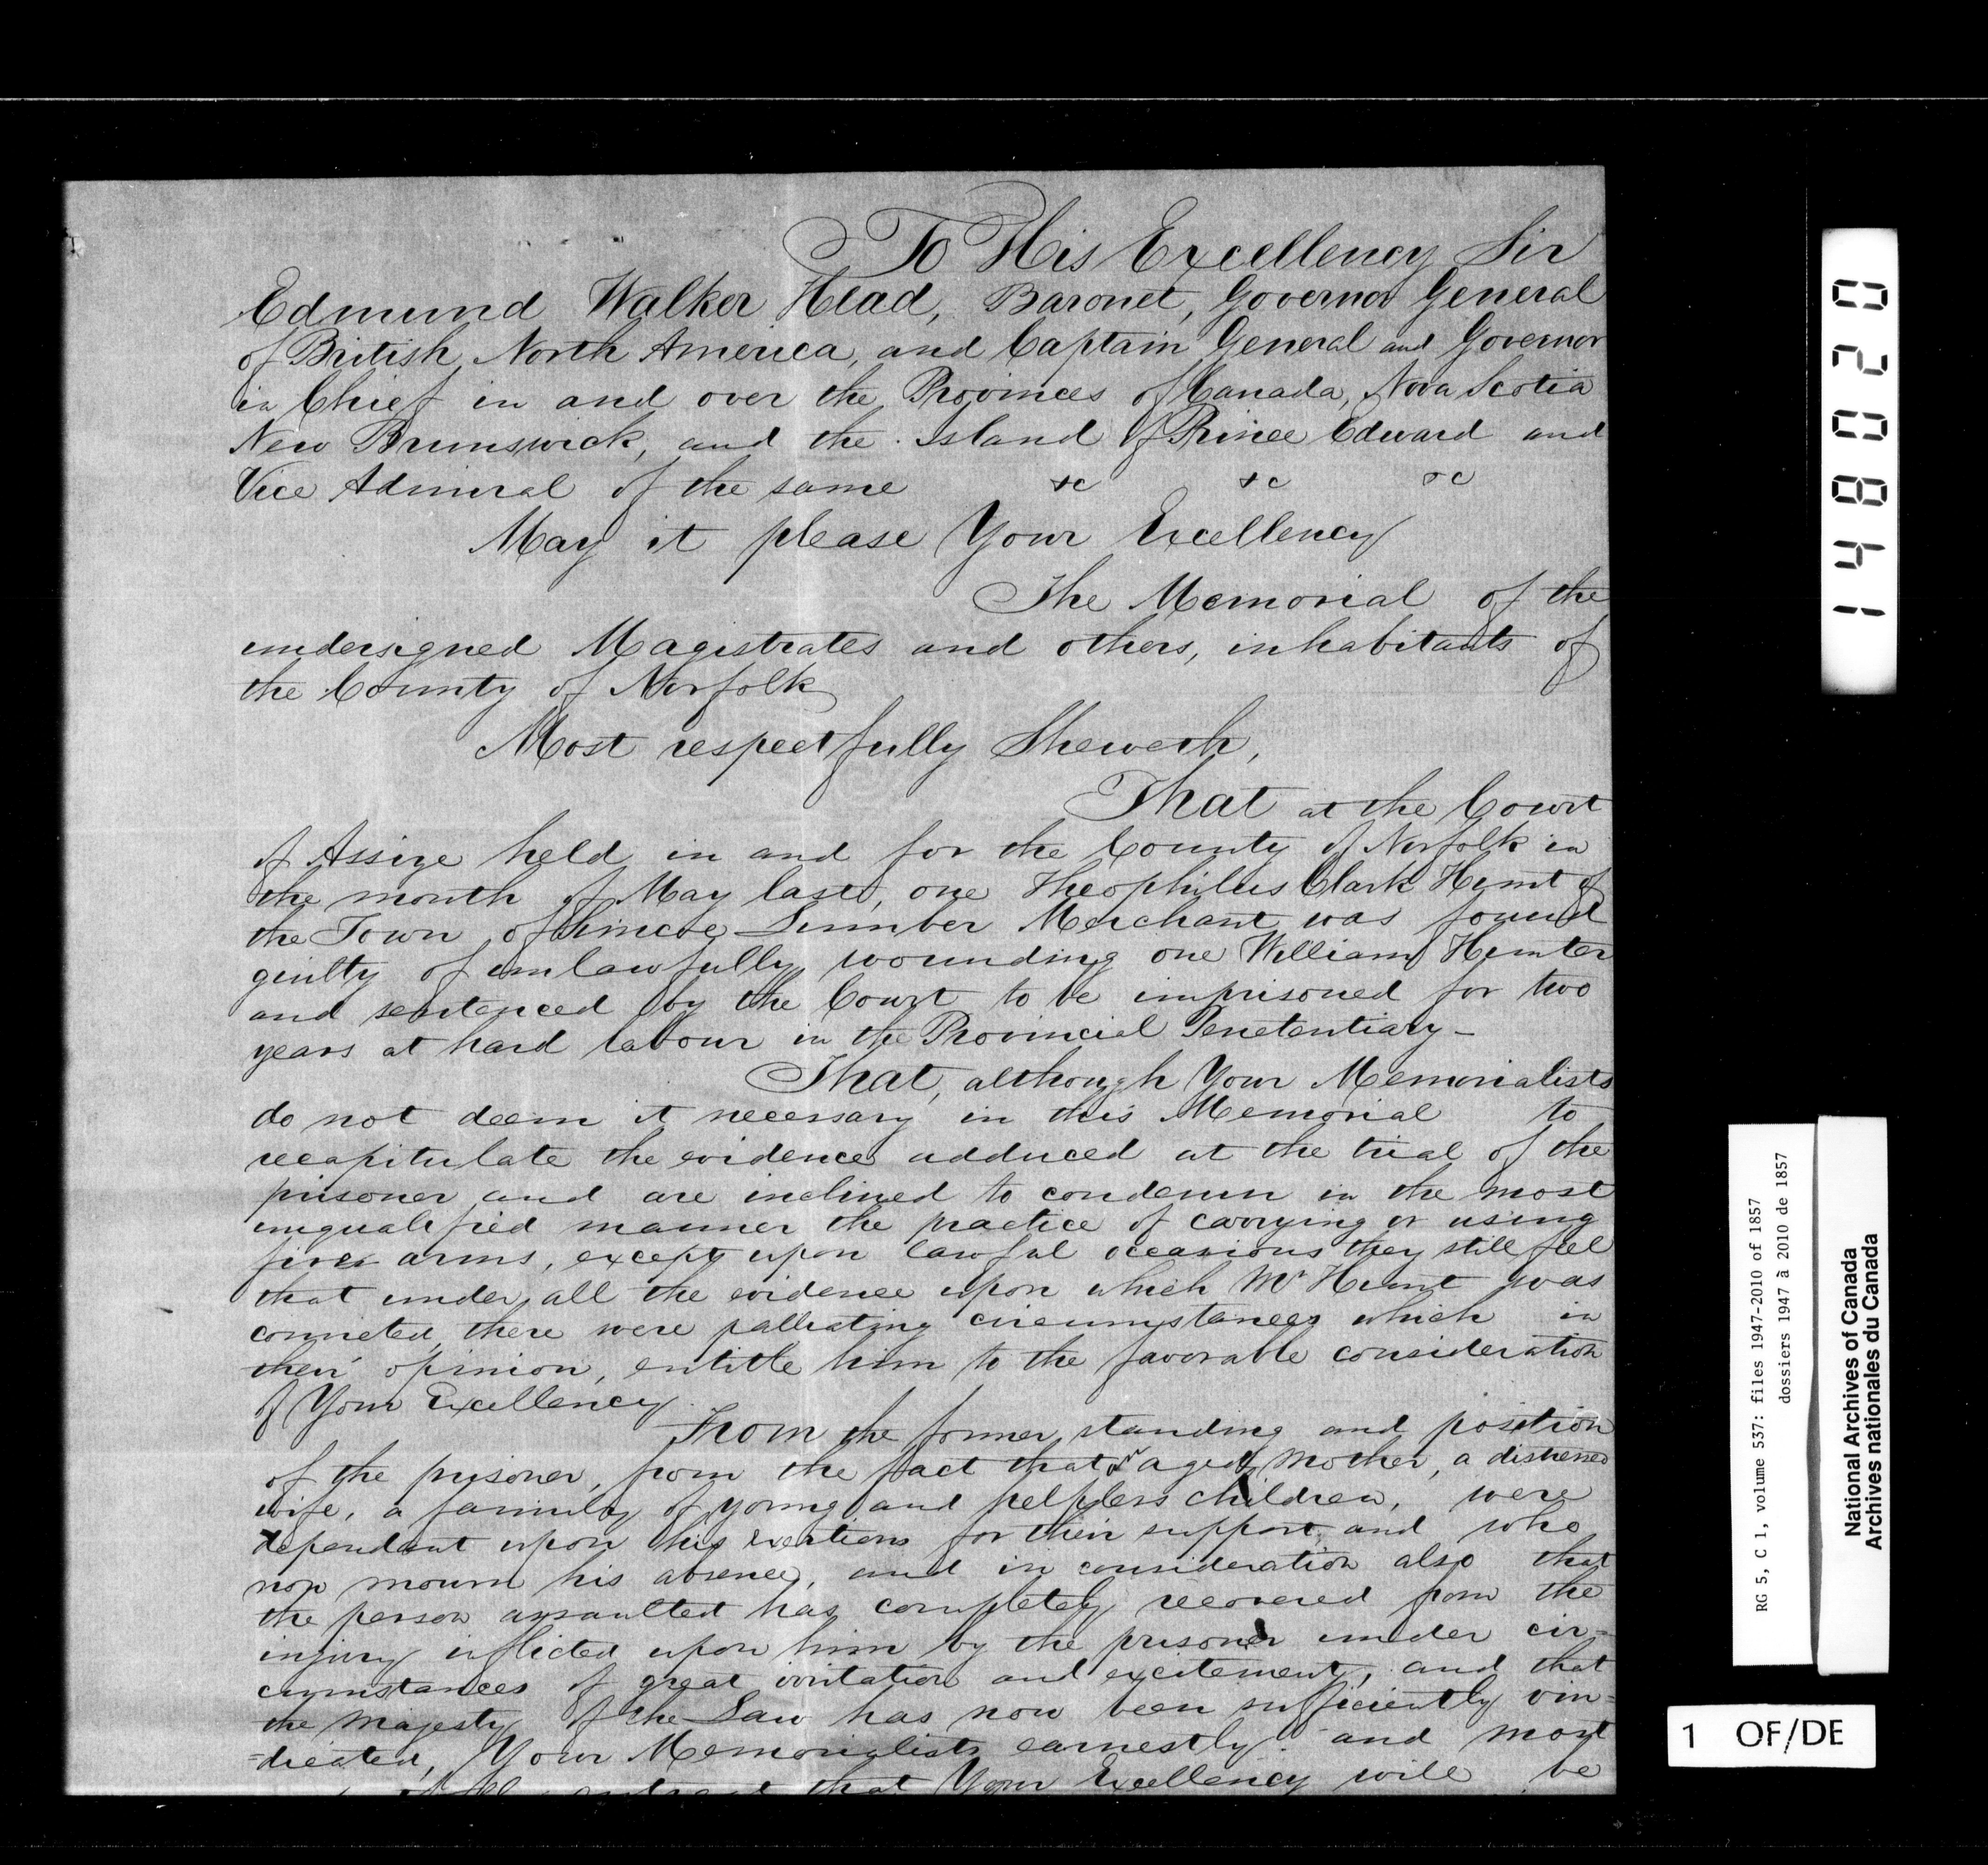 To His Excellency Sir
Edmund Walker Head, Baronet, Governor General
of British North America, and Captain General and Governor
in Chief in and over the Provinces of Canada, Nova Scotia
New Brunswick, and the Island of Prince Edward and
Vice Admiral of the same &c &c &c
May it please Your Excellency
The Memorial of the
undersigned Magistrates and others, inhabitants of
the County of Norfolk
Most respectfully Sheweth,
That at the Court
of Assize held in and for the County of Norfolk in
the month of May last, one Theophilus Clark Hunt of
the Town of Simcoe Lumber Merchant was found
guilty of unlawfully wounding one William Hunter
and sentenced by the Court to be imprisoned for two
years at hard labour in the Provincial Penetentiary -
That, although Your Memorialists
do not deem it necessary in this Memorial to
recapitulate the evidence adduced at the trial of the
prisoner and are inclined to condemn in the most
unqualified manner the practice of carrying or using
fire arms, except upon lawful occasions they still feel
that under all the evidence upon which Mr Hunt was
convicted, there were palliating circumstances which in
their opinion, entitle him to the favorable consideration
of Your Excellency.
From the former standing and position
of the prisoner, from the fact that aged mother, a distressed
wife, a family of young and helpless children, were
dependent upon his exertions for their support, and who
now mourn his absence, and in consideration also that
the person assaulted has completely recovered from the
injury inflicted upon him by the prisoner under cir=
cumstances of great irritation and excitement, and that
the majesty of the Law has now been sufficiently vin=
=dicated, Your Memorialists earnestly and most
entreat that Your Excellency will be
148020
RG 5, C 1, volume 537: files 1947-2010 of 1857
dossiers 1947 à 2010 de 1857
National Archives of Canada
Archives nationales du Canada
1 OF/DE